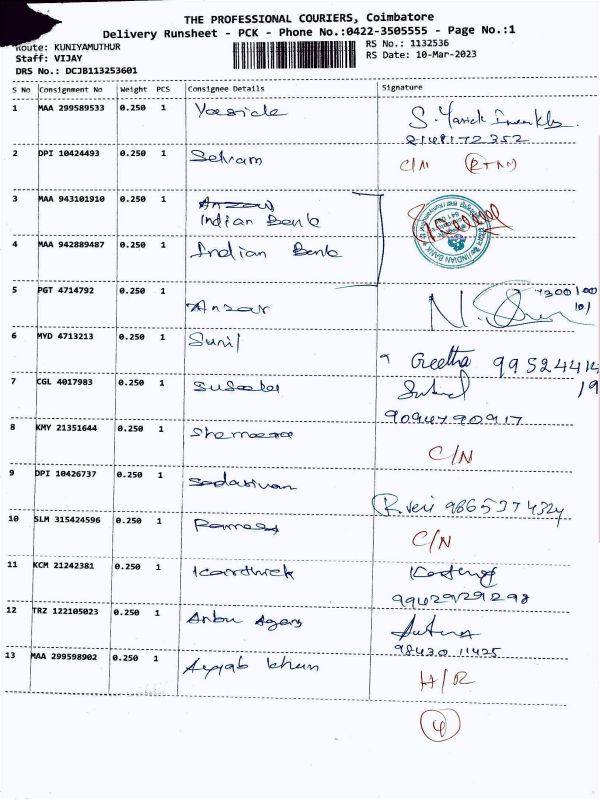 THE PROFESSIONAL COURIERS, Coimbatore
Delivery Runsheet - PCK - Phone No.:0422-3505555 - Page No.:1
Route: KUNIYAMUTHUR
RS No.: 1132536
Staff: VIJAY
RS Date: 10-Mar-2023
DRS No.: DCJB113253601
S No Consignment No Weight PCS Consignee Details Signature
1 MAA 299589533 0.250 1
2 DPI 10424493 0.250 1 Selvam C/N
3 MAA 943101910 0.250 1 Indian Bank
4 MAA 942889487 0.250 1 Indian Bank
5 PGT 4714792 0.250 1 Ansar
6 MYD 4713213 0.250 1 Sunil Geetha
7 CGL 4017983 0.250 1
9094790917
8 KMY 21351644 0.250 1 C/N
9 DPI 10426737 0.250 1 Sadasivan
10 SLM 315424596 0.250 1 C/N
11 KCM 21242381 0.250 1 Karthick
9942929298
12 TRZ 122105023 0.250 1
98430 11425
13 MAA 299598902 0.250 1 Ayyab khan
4